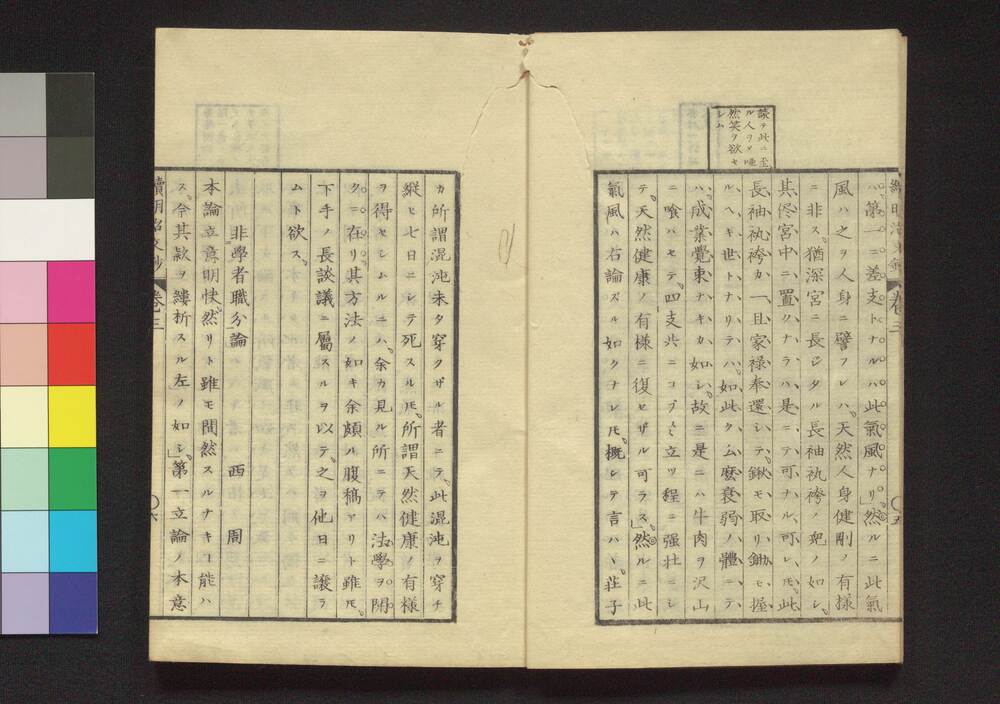 讀テ此ニ至
ル人ヲメ唾
然笑ヲ欲セ
シム
ハ第一ニ差支トナルハ此氣風ナリ」然ルニ此氣
風ハ之ヲ人身ニ譬フレハ天然人身健剛ノ有樣
ニ非ス猶深宮ニ長ジタル長袖紈袴ノ兜ノ如シ
其佟宮中ニ置クナラハ是ニテ可ナル可レ𪜈此
長袖紈袴カ一旦家祿奉還シテ鍬モ取リ鋤モ握
ルヘキ世トナリテハ如此ク么麼衰弱ノ體ニテ
ハ成業覺束ナキカ如シ故ニ是ニハ牛肉ヲ沢山
ニ喰ハセテ四支共ニコブ〻立ツ程ニ强壮ニシ
テ天然健康ノ有樣ニ復セザル可ラス」然ルニ此
氣風ハ右論スル如クナレ𪜈概シテ言ハヽ莊子
カ所謂混沌未タ穿クザル者ニテ此混沌ヲ穿チ
縱ヒ七日ニシテ死スル𪜈所謂天然健康ノ有樣
ヲ得セシムルニハ余カ見ル所ニテハ法學ヲ開
クニ在リ其方法ノ如キ余頗ル腹稿アリト雖𪜈
下手ノ長談議ニ屬スルヲ以テ之ヲ他日ニ讓ラ
ムト欲ス
非學者職分論　西周
本論立意明快然リト雖モ間然スルナキヿ能ハ
ス今其款ヲ縷析スル左ノ如シ」第一立論ノ本意
續明治文鈔　卷三　六